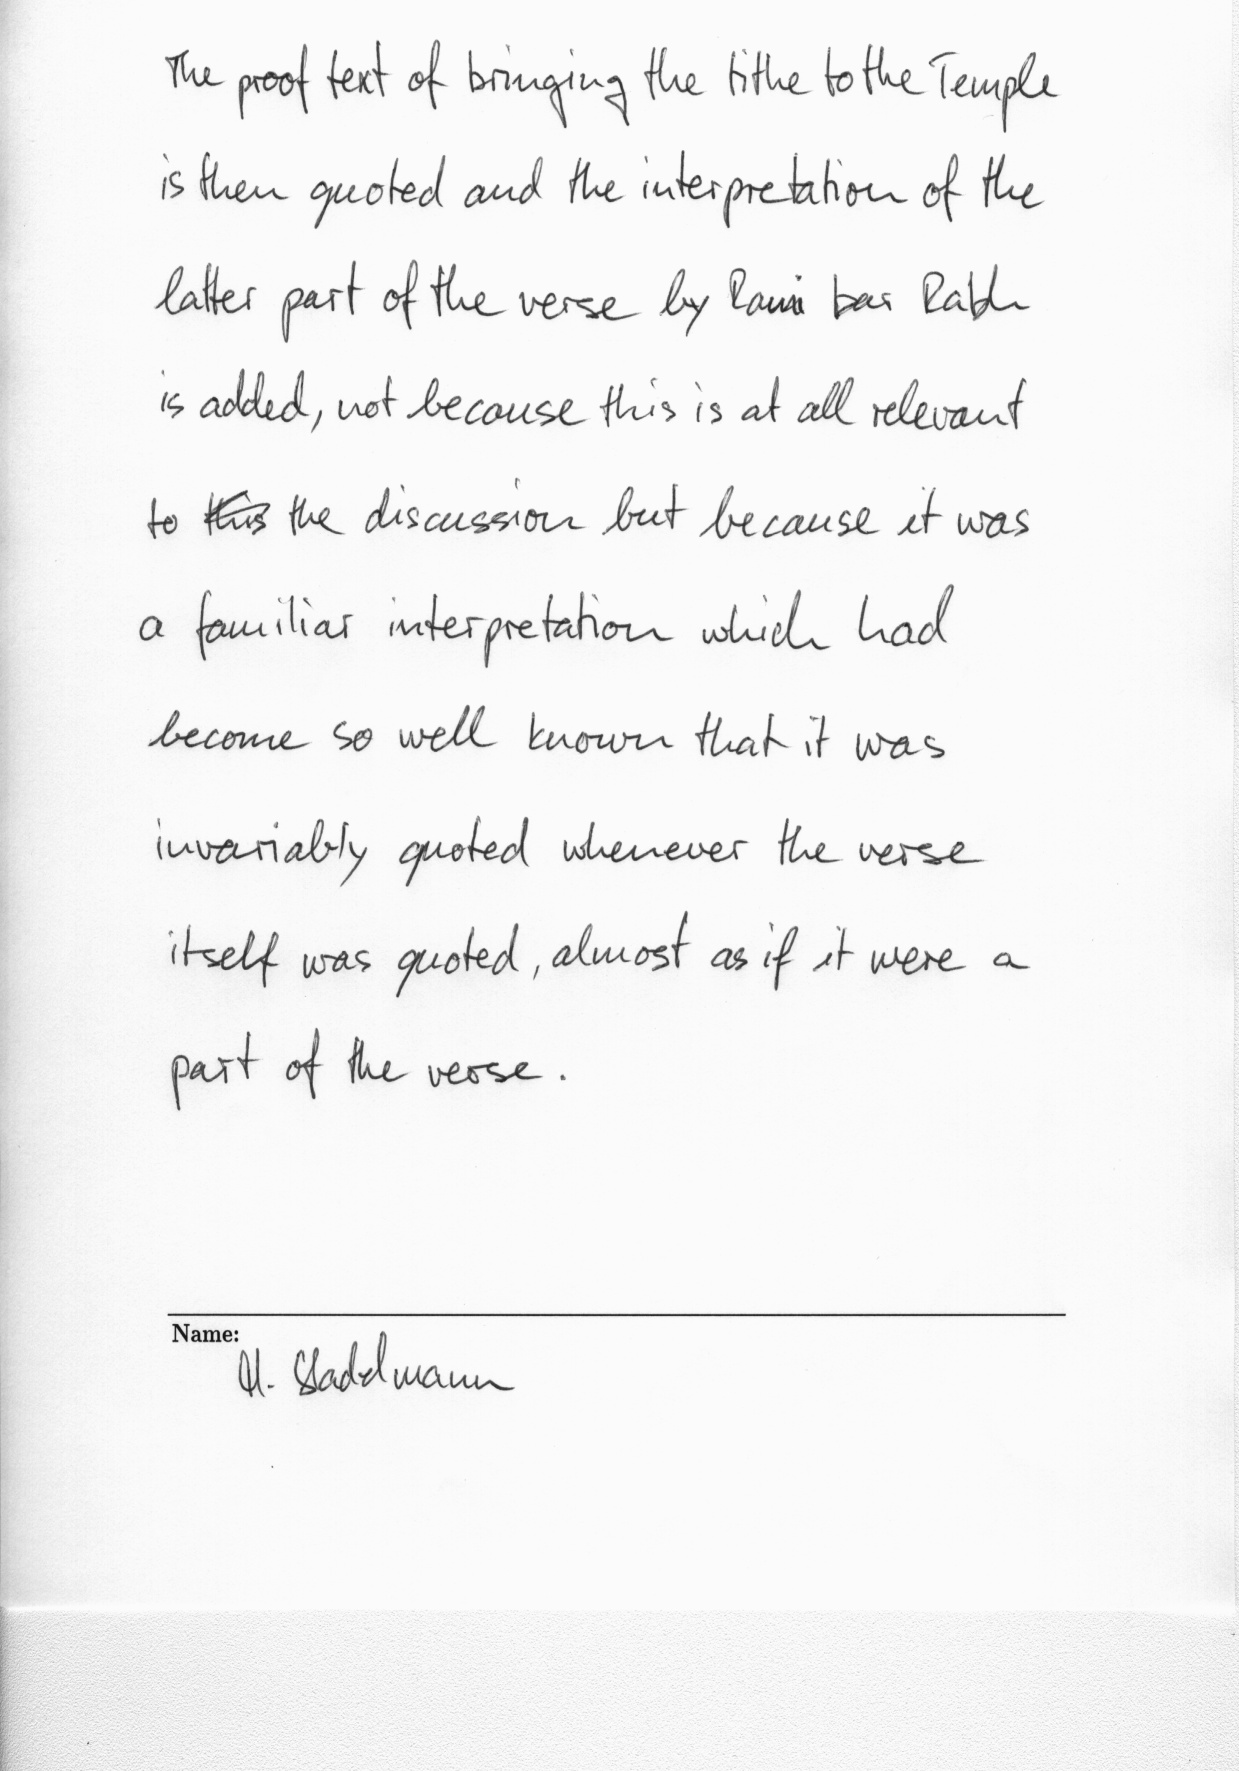 The proof text of bringing the tithe to the Temple
is then quoted and the interpretation of the
latter part of the verse by Rami bar Rabh
is added, not because this is at all relevant
to this the discussion but because it was
a familiar interpretation which had
become so well known that it was
invariably quoted whenever the verse
itself was quoted, almost as if it were a
part of the verse.
Name:
H. Stadelmann